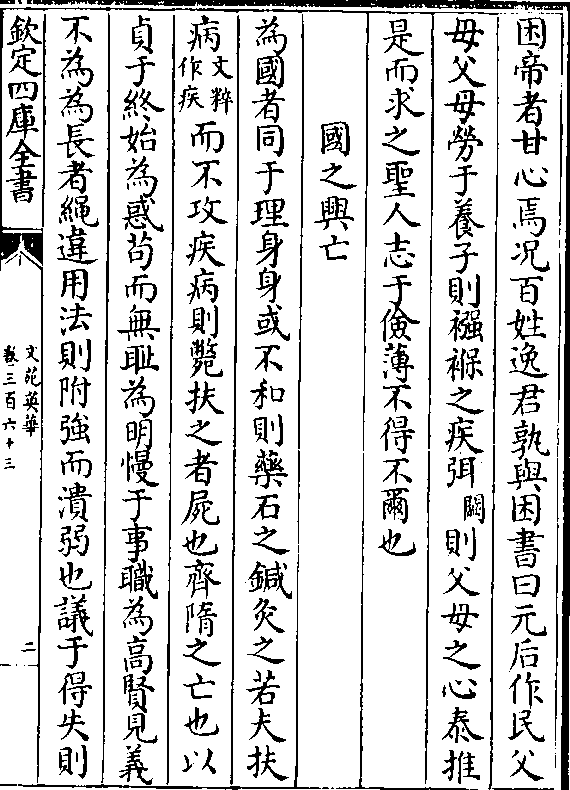 困帝者甘心焉况百姓逸君孰與困書曰元后作民父
母父母勞于養子則襁褓之疾弭闕則父母之心泰推
是而求之聖人志于儉薄不得不爾也
國之興亡
為國者同于理身身或不和則藥石之鍼灸之若夫扶
病文粹作疾而不攻疾病則斃扶之者屍也齊隋之亡也以
貞于終始為惑苟而無耻為明慢于事職為高賢見義
不為為長者繩違用法則附強而潰弱也議于得失則
欽定四庫全書
文苑英華
卷三百六十三
二